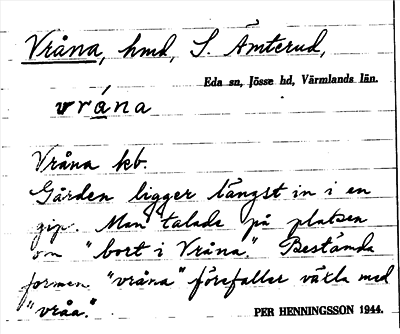 Vråna, hmd, S. Ämterud,
Eda sn, Jösse hd, Värmlands län.
vrána
Vråna kb.
Gården ligger längst in i en
gip. Man talade på platsen
om "bort i Vråna." Bestämda
formen "vråna" förefaller växla med
"vråa."
PER HENNINGSSON 1944.